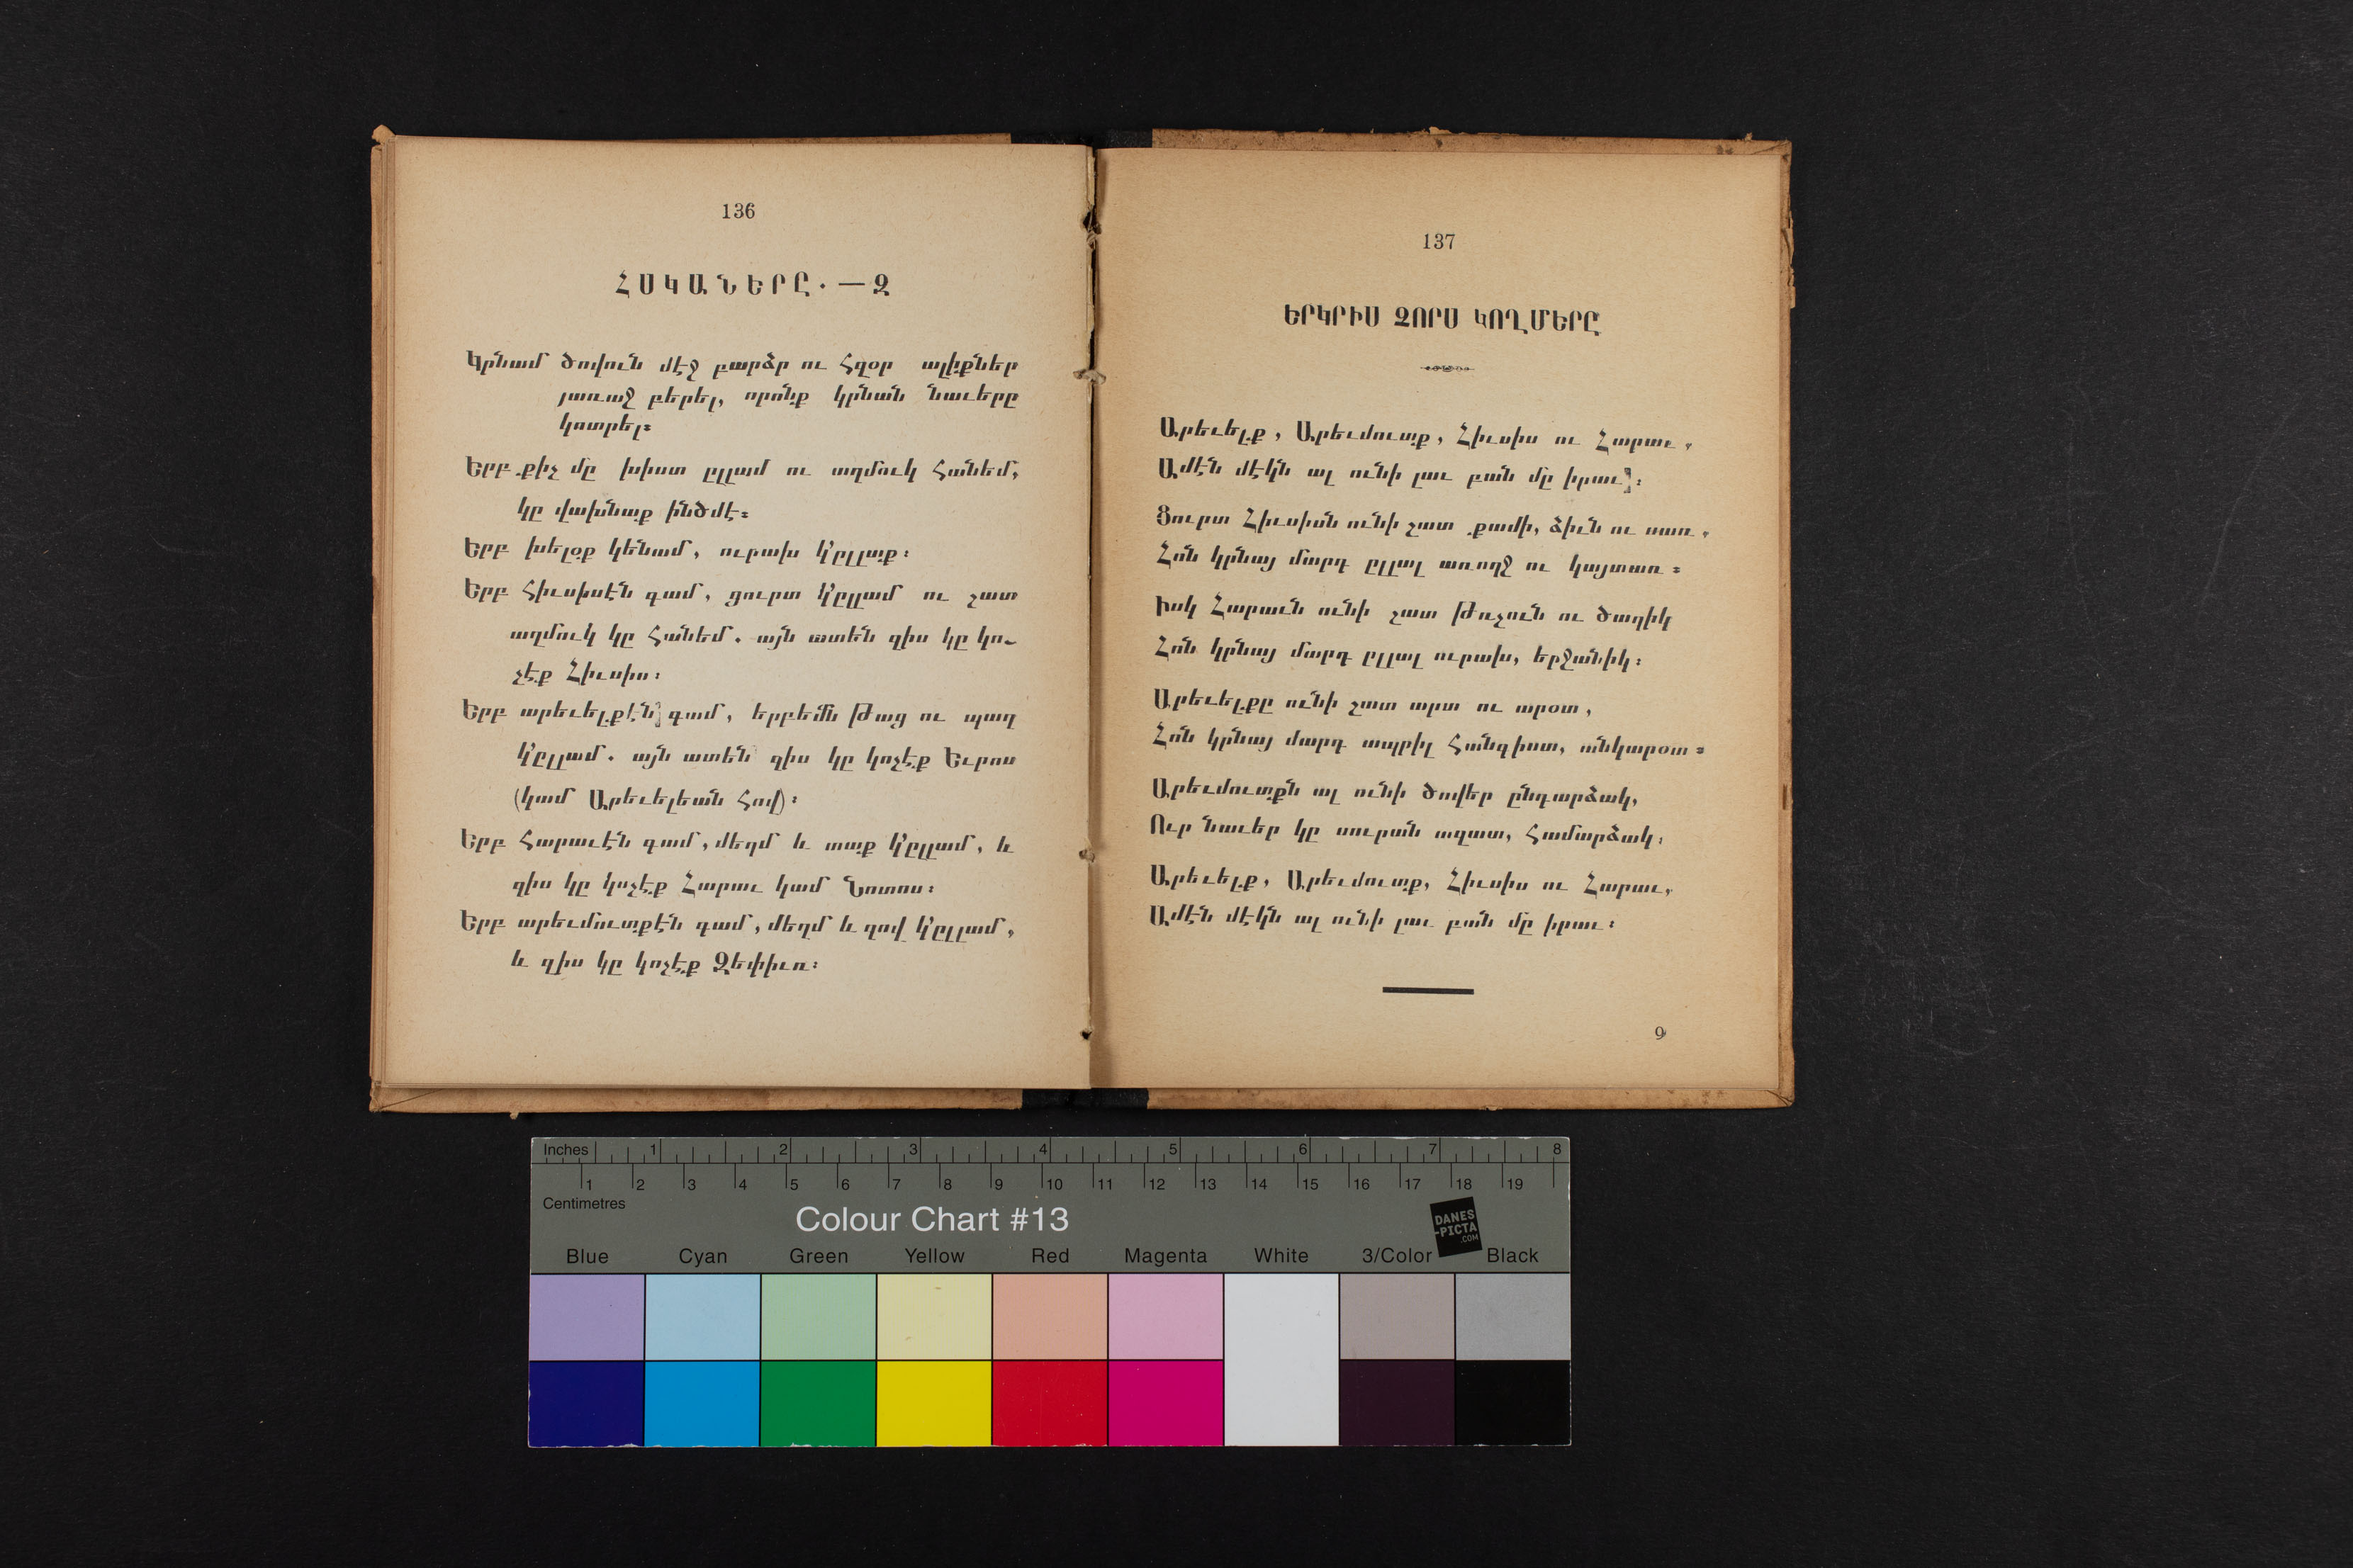 136
ՀՍԿԱՆԵՐԸ. — Զ
Կրնամ ծովուն մէջ բարձր ու հզօր ալիքներ
յառաջ բերել, որոնք կրնան նաւերը
կոտրել։
Երբ քիչ մը խիստ ըլլամ ու աղմուկ հանեմ,
կը վախնաք ինծմէ։
Երբ խելօք կենամ, ուրախ կ՚ըլլաք։
Երբ հիւսիսէն գամ, ցուրտ կ՚ըլլամ ու շատ
աղմուկ կը հանեմ. այն ատեն զիս կը կո-
չէք Հիւսիս։
Երբ արեւելքէն գամ, երբեմն թաց ու պաղ
կ՚ըլլամ. այն ատեն զիս կը կոչէք Եւրոս
(կամ Արեւելեան հով)։
Երբ հարաւէն գամ, մեղմ և տաք կ՚ըլլամ, և
զիս կը կոչէք Հարաւ կամ Նոտոս։
Երբ արեւմուտքէն գամ, մեղմ և զով կ՚ըլլամ,
և զիս կը կոչէք Զեփիւռ։
137
ԵՐԿՐԻՍ ՉՈՐՍ ԿՈՂՄԵՐԸ
Արեւելք, Արեւմուտք, Հիւսիս ու Հարաւ,
Ամէն մէկն ալ ունի լաւ բան մը իրաւ։
Ցուրտ Հիւսիսն ունի շատ քամի, ձիւն ու սառ,
Հոն կրնայ մարդ ըլլալ առողջ ու կայտառ։
Իսկ Հարաւն ունի շատ թռչուն ու ծաղիկ
Հոն կրնայ մարդ ըլլալ ուրախ, երջանիկ։
Արեւելքը ունի շատ արտ ու արօտ,
Հոն կրնայ մարդ ապրիլ հանգիստ, անկարօտ։
Արեւմուտքն ալ ունի ծովեր ընդարձակ,
Ուր նաւեր կը սուրան ազատ, համարձակ։
Արեւելք, Արեւմուտք, Հիւսիս ու Հարաւ,
Ամէն մէկն ալ ունի լաւ բան մը իրաւ։
9
Inches 1 2 3 4 5 6 7 8
1 2 3 4 5 6 7 8 9 10 11 12 13 14 15 16 17 18 19
Centimetres
Colour Chart #13
DANES
-PICTA
.COM
Blue Cyan Green Yellow Red Magenta White 3/Color Black